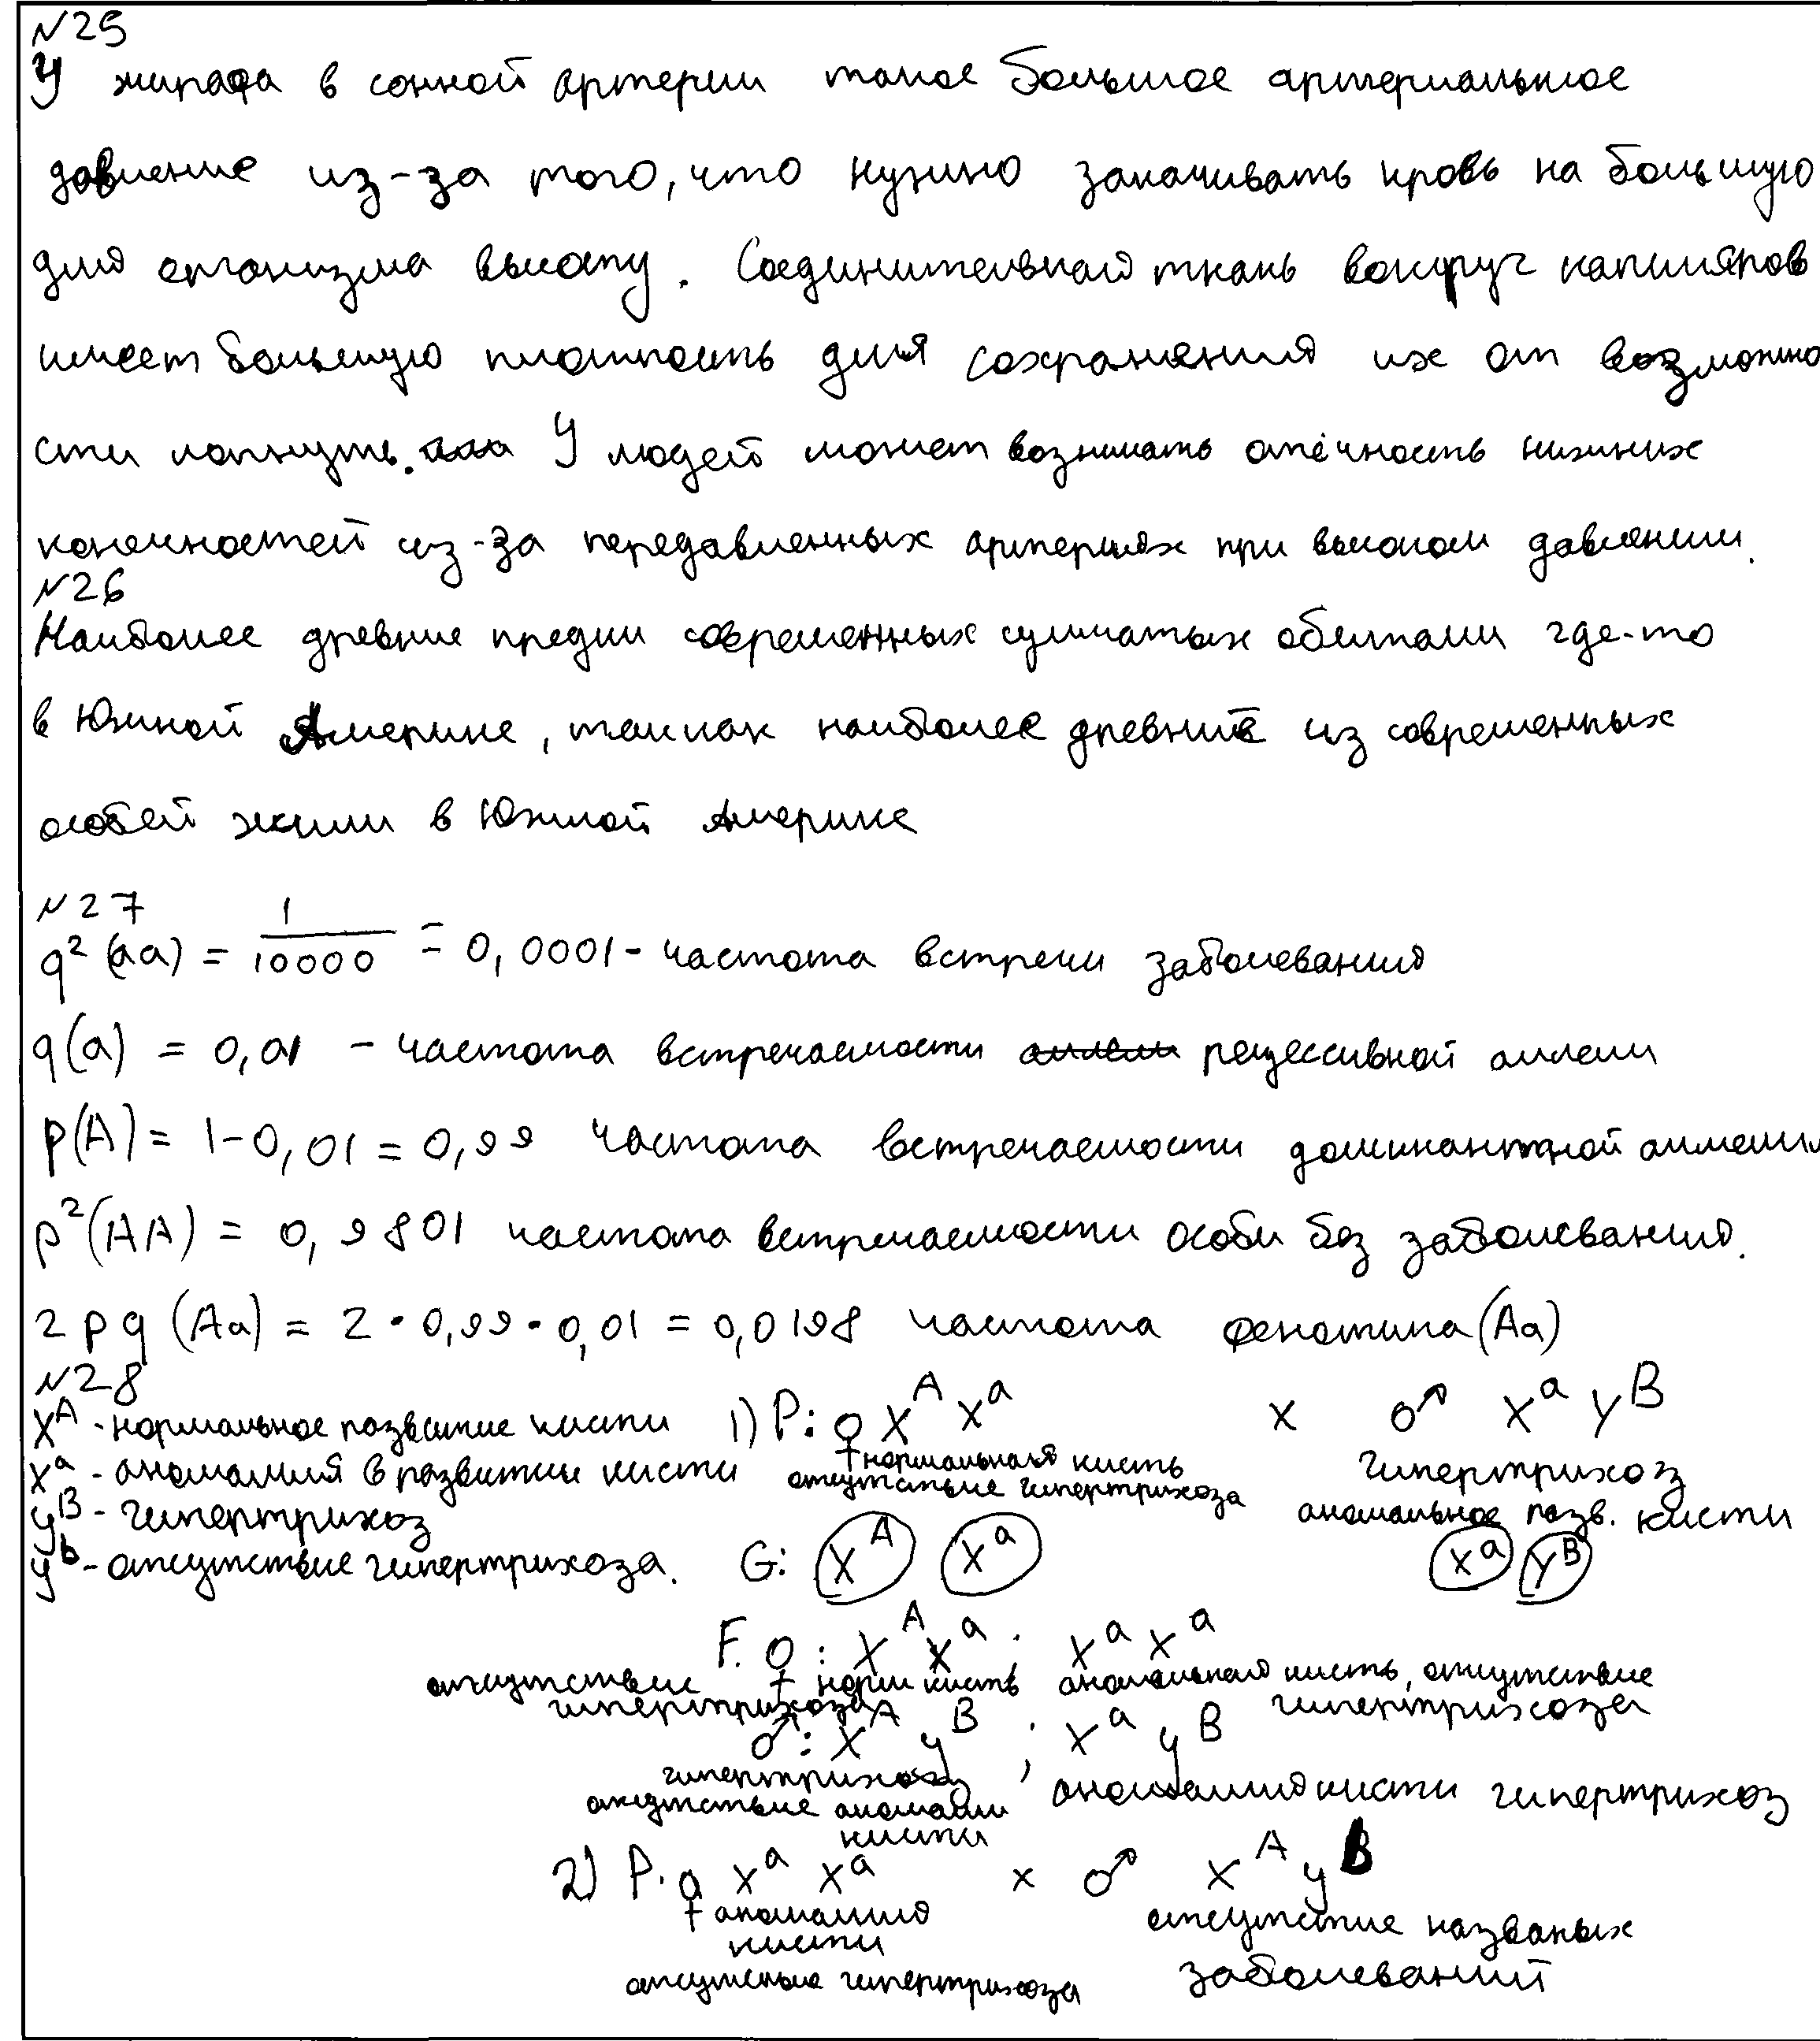 N25
У жирафа в сонной артерии такое большое артериальное
давление из-за того, что нужно закачивать кровь на большую
для организма высоту. Соединительная ткань вокруг капиляров
имеет большую плотность для сохранения их от возможно
сти лопнуть. У людей может возникать отёчность нижних
конечностей из-за передавленных артериях при высоком давлении.
N26
Наиболее древние предки современных сумчатых обитали где-то
в Южной Америке, так как наиболее древние из современных
особей жили в Южной Америке
N27
q²(aa) = 1/10000 = 0,0001 - частота встречи заболевания
q(a) = 0,01 - частота встречаемости аллели рецессивной аллели
p(A) = 1-0,01 = 0,99 частота встречаемости доминантной аллели
p²(AA) = 0,9801 частота встречаемости особи без заболевания.
2pq (Aa) = 2·0,99·0,01 = 0,0198 частота фенотипа (Aa)
N28
X^A - нормальное развитие кисти 1) P: ♀ X^A X^a x ♂ X^a Y^B
X^a - аномалия в развитии кисти нормальная кисть гипертрихоз
отсутствие гипертрихоза аномальное разв. кисти
y^B - гипертрихоз
y^b - отсутствие гипертрихоза. G: X^A X^a X^a Y^B
F. ♀: X^A X^a; X^a X^a
отсутствие норм кисть аномальная кисть, отсутствие
гипертрихоза гипертрихоза
♂: X^A y^B ; X^a y^B
гипертрихоз
отсутствие аномалии аномалия кисти гипертрихоз
кисти
2) P. ♀ X^a X^a x ♂ X^A y^b
аномалия отсутстие названых
кисти
отсутствие гипертрихоза заболеваний